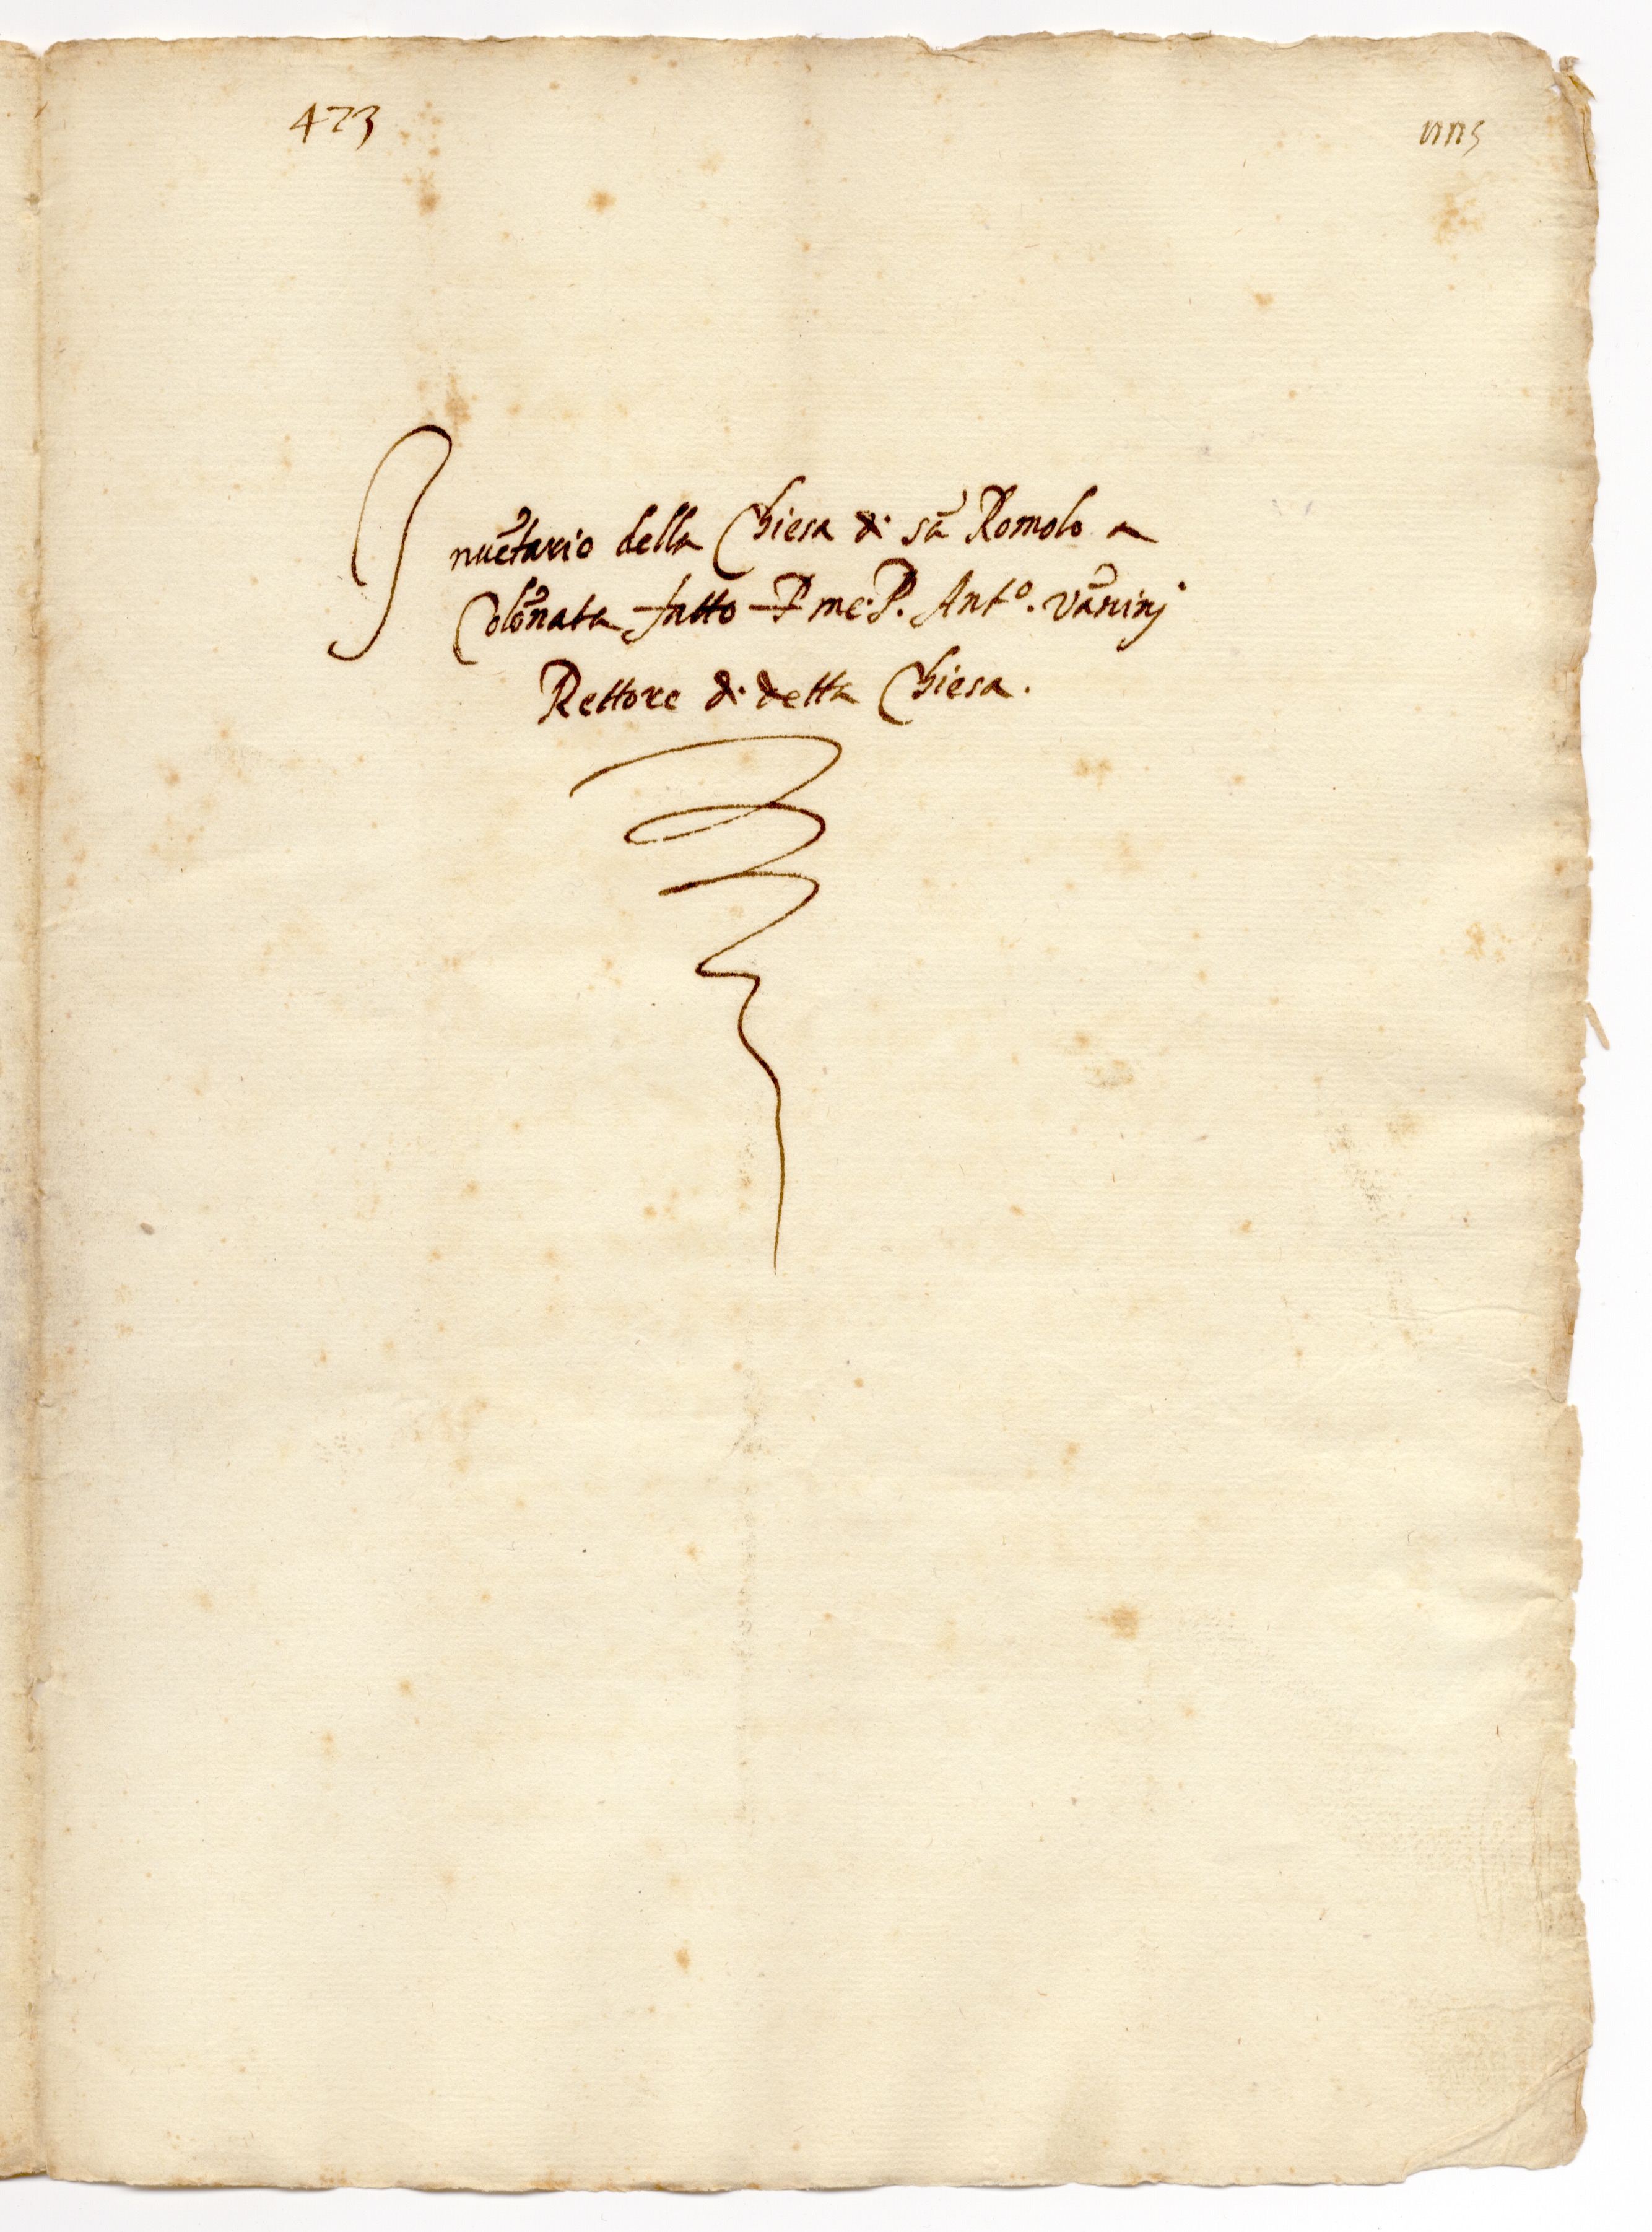 473
Inuẽtario della Chiesa di sã Romolo a
Colõnata fatto P me P. Antº. vãnini
Rettore di detta Chiesa.